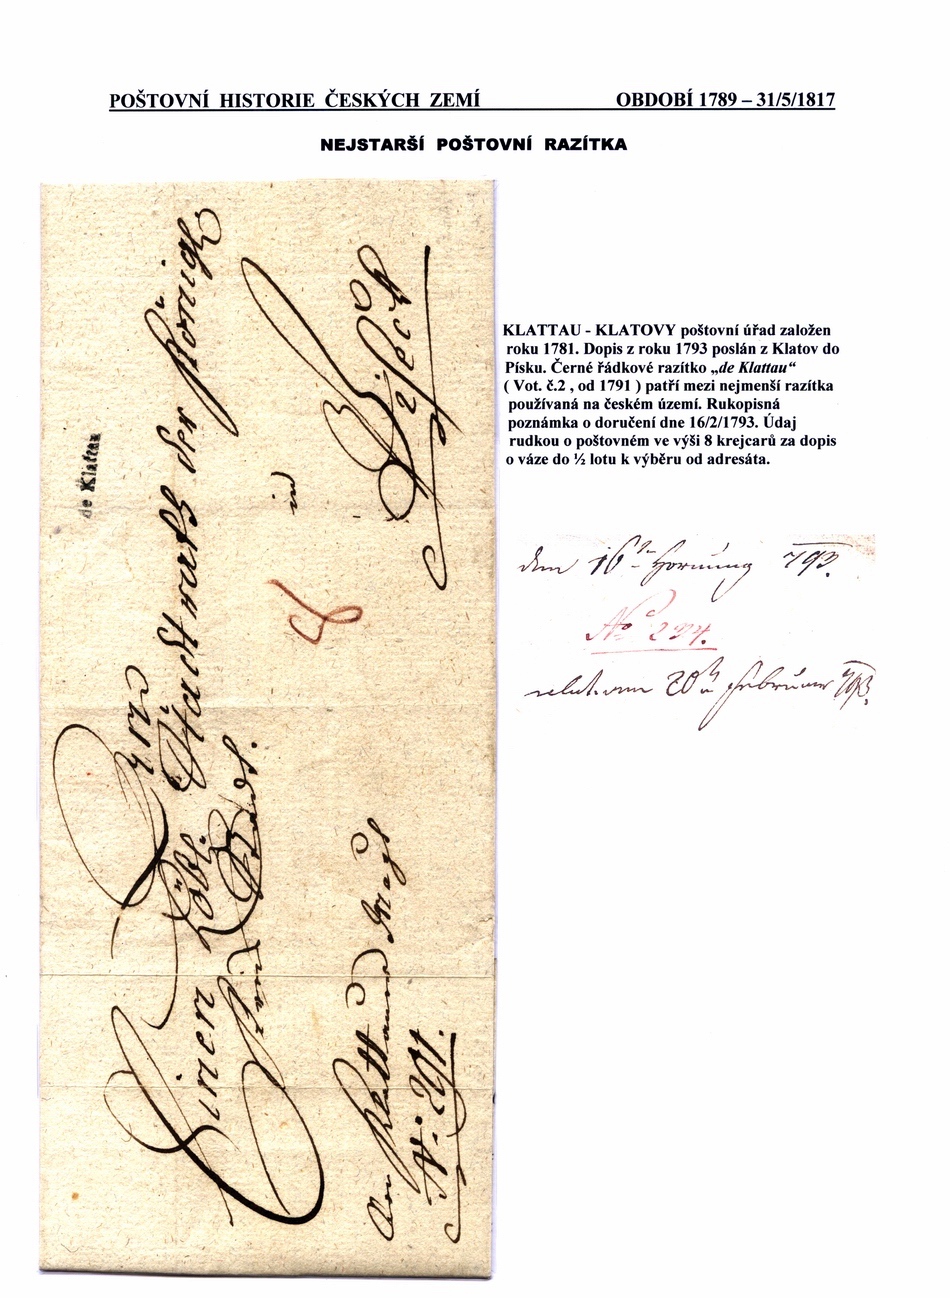 POŠTOVNÍ HISTORIE ČESKÝCH ZEMÍ OBDOBÍ 1789 – 31/5/1817
NEJSTARŠÍ POŠTOVNÍ RAZÍTKA
de Klattau
Einen Löbl. Stadtrath der König
in
8
N: 291.
KLATTAU - KLATOVY poštovní úřad založen
roku 1781. Dopis z roku 1793 poslán z Klatov do
Písku. Černé řádkové razítko „de Klattau“
( Vot. č.2 , od 1791 ) patří mezi nejmenší razítka
používaná na českém území. Rukopisná
poznámka o doručení dne 16/2/1793. Údaj
rudkou o poštovném ve výši 8 krejcarů za dopis
o váze do ½ lotu k výběru od adresáta.
den 16ten Hornung 793.
No 294.
20ten Februar 793.